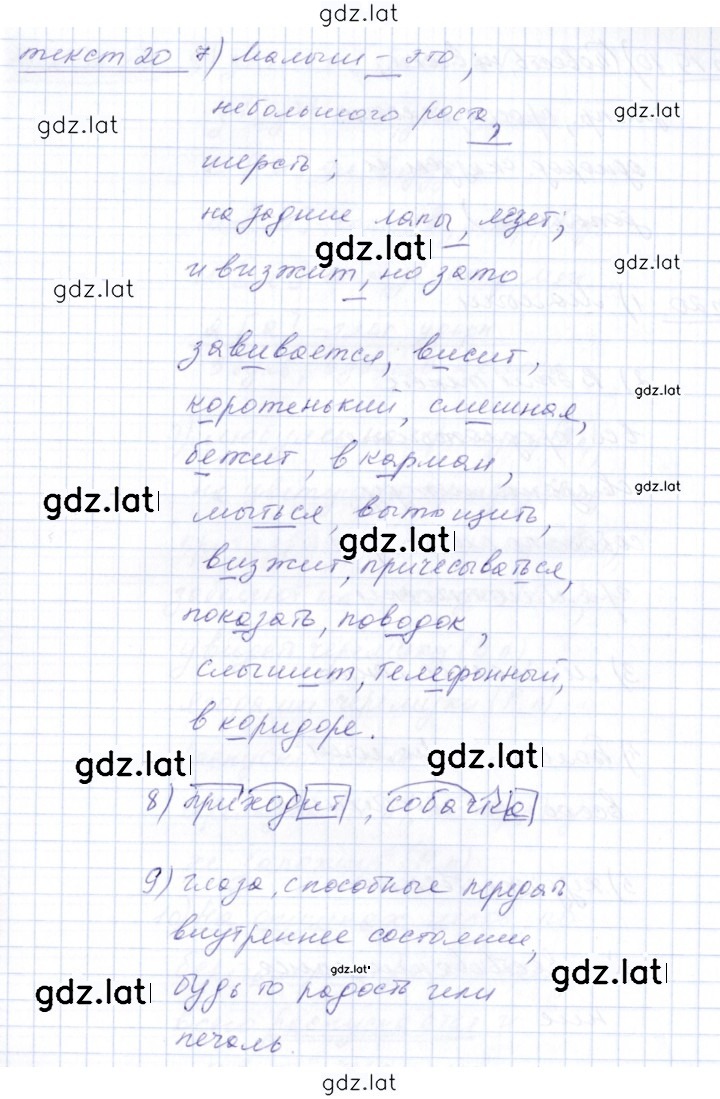 gdz.lat
текст 20 7) Малыш – это;
небольшого роста,
gdz.lat
gdz.lat
шерсть;
на задние лапы, лает;
gdz.lat
gdz.lat
и визжит, но зато
gdz.lat
завивается, висит,
gdz.lat
коротенький, смешная,
бежит, в карман,
gdz.lat
gdz.lat
мыться, вытащить,
gdz.lat
визжит, причесываться,
показать, поводок,
слышит, телефонный,
в коридоре.
gdz.lat
gdz.lat
8) приходит, собачка
9) глаза, способные передать
внутреннее состояние,
gdz.lat
gdz.lat
gdz.lat
будь то радость или
печаль.
gdz.lat